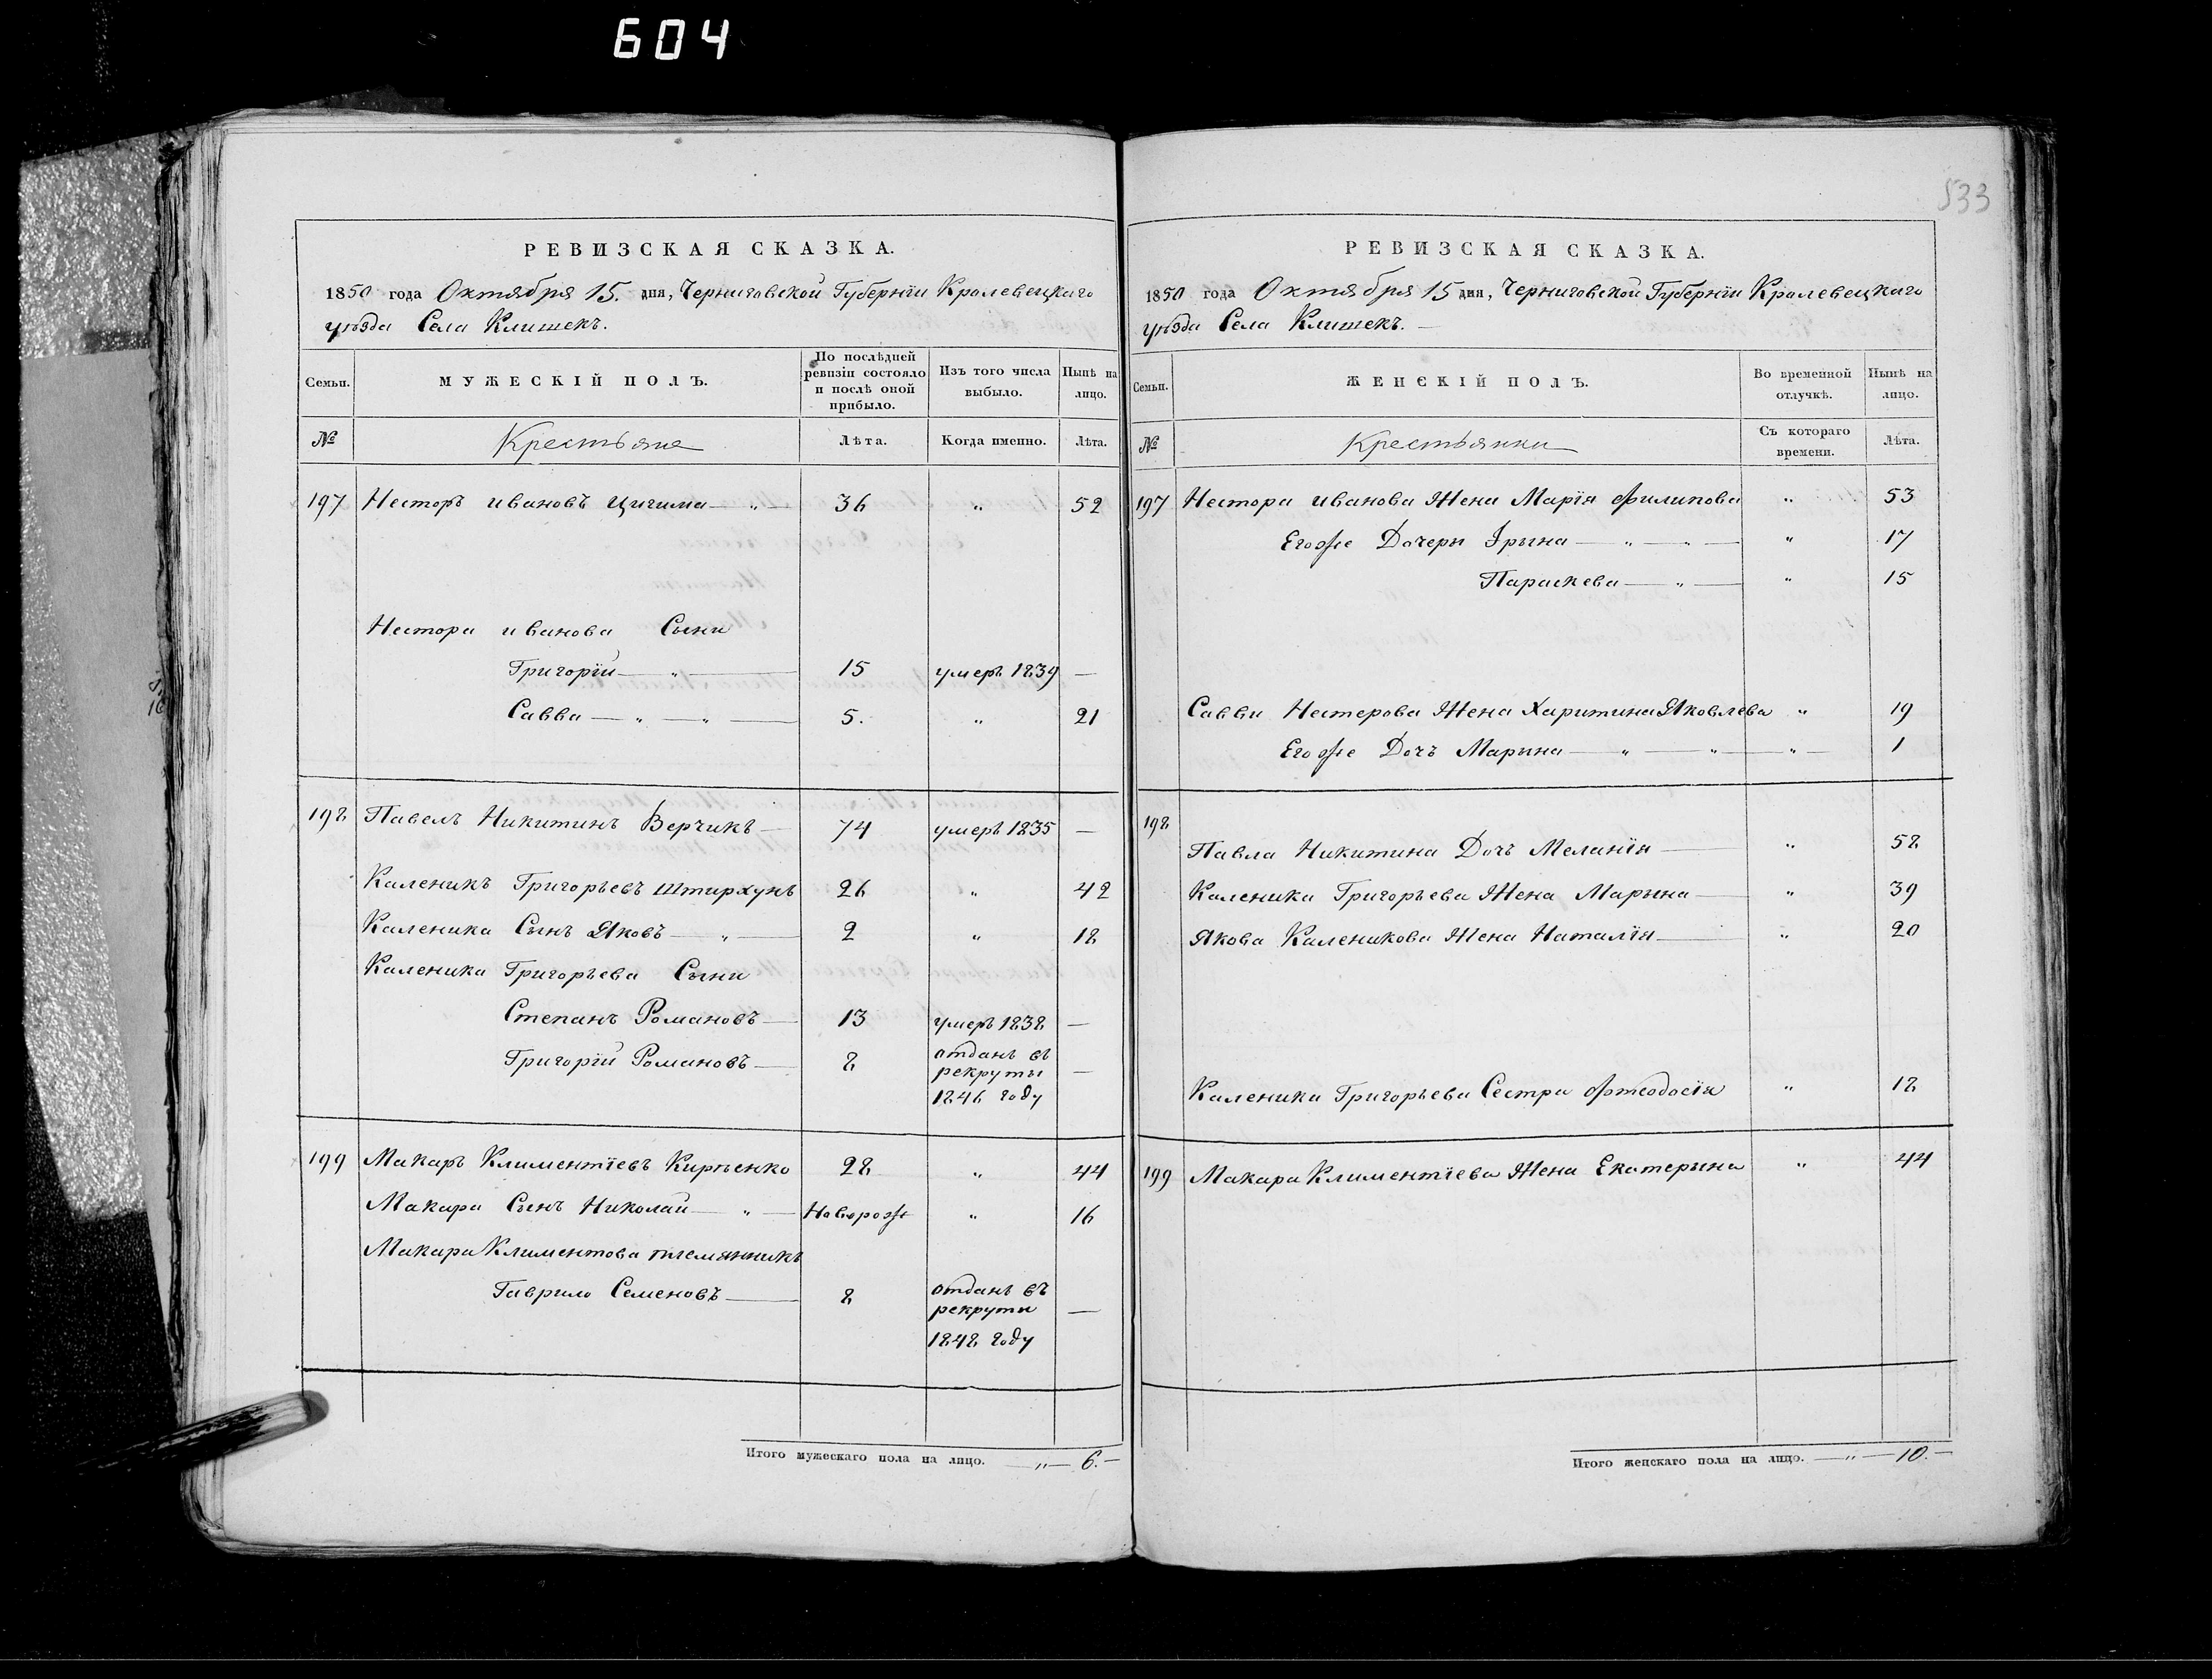 604
533
РЕВИЗСКАЯ СКАЗКА.
1850 года Октября 15. дня, Черниговской Губерніи Кролевецкаго
уѣзда Села Клишекъ.
Семьи.
МУЖЕСКІЙ ПОЛЪ.
По послѣдней ревизіи состояло и послѣ оной прибыло.
Изъ того числа выбыло.
Нынѣ на лицо.
№
Крестьяне
Лѣта.
Когда именно.
Лѣта.
197 Несторъ ивановъ Цигима — „ — 36 „ 52
Нестора иванова Сыни
Григорій — „ — 15 умеръ 1839 —
Савва — „ — „ — 5. „ 21
198 Павелъ Никитинъ Верчикъ — 74 умеръ 1835 —
Каленикъ Григорьевъ Штырхунъ 26 „ 42
Каленика Сынъ Яковъ — „ — 2 „ 18
Каленика Григорьева Сыни
Степанъ Романовъ — 13 умеръ 1838 —
Григорій Романовъ — 8 отданъ въ
рекруты —
1846 году
199 Макаръ Климентіевъ Кирѣенко 28 „ 44
Макара Сынъ Николай — „ — Новорож „ 16
Макара Климентова племянникъ
Гаврило Семеновъ — 8 отданъ въ
рекруты —
1848 году
Итого мужескаго пола на лицо. — „ — 6. —
РЕВИЗСКАЯ СКАЗКА.
1850 года Октября 15 дня, Черниговской Губерніи Кролевецкаго
уѣзда Села Клишекъ. —
Семьи.
ЖЕНСКІЙ ПОЛЪ.
Во временной отлучкѣ.
Нынѣ на лицо.
№
Крестьянки
Съ котораго времени.
Лѣта.
197 Нестора иванова Жена Марія Филипова „ 53
Егоже Дочери Ірына — „ — „ — „ 17
Параскева — „ — „ 15
Савви Нестерова Жена Харитина Яковлева „ 19
Егоже Дочъ Марына — „ — „ — „ — 1
198
Павла Никитина Дочъ Меланія — „ 58
Каленика Григорьева Жена Марына — „ 39
Якова Каленикова Жена Наталія — „ 20
Каленика Григорьева Сестра Фтеодосія „ 18
199 Макара Климентіева Жена Екатерына „ 44
Итого женскаго пола на лицо. — „ — 10. —